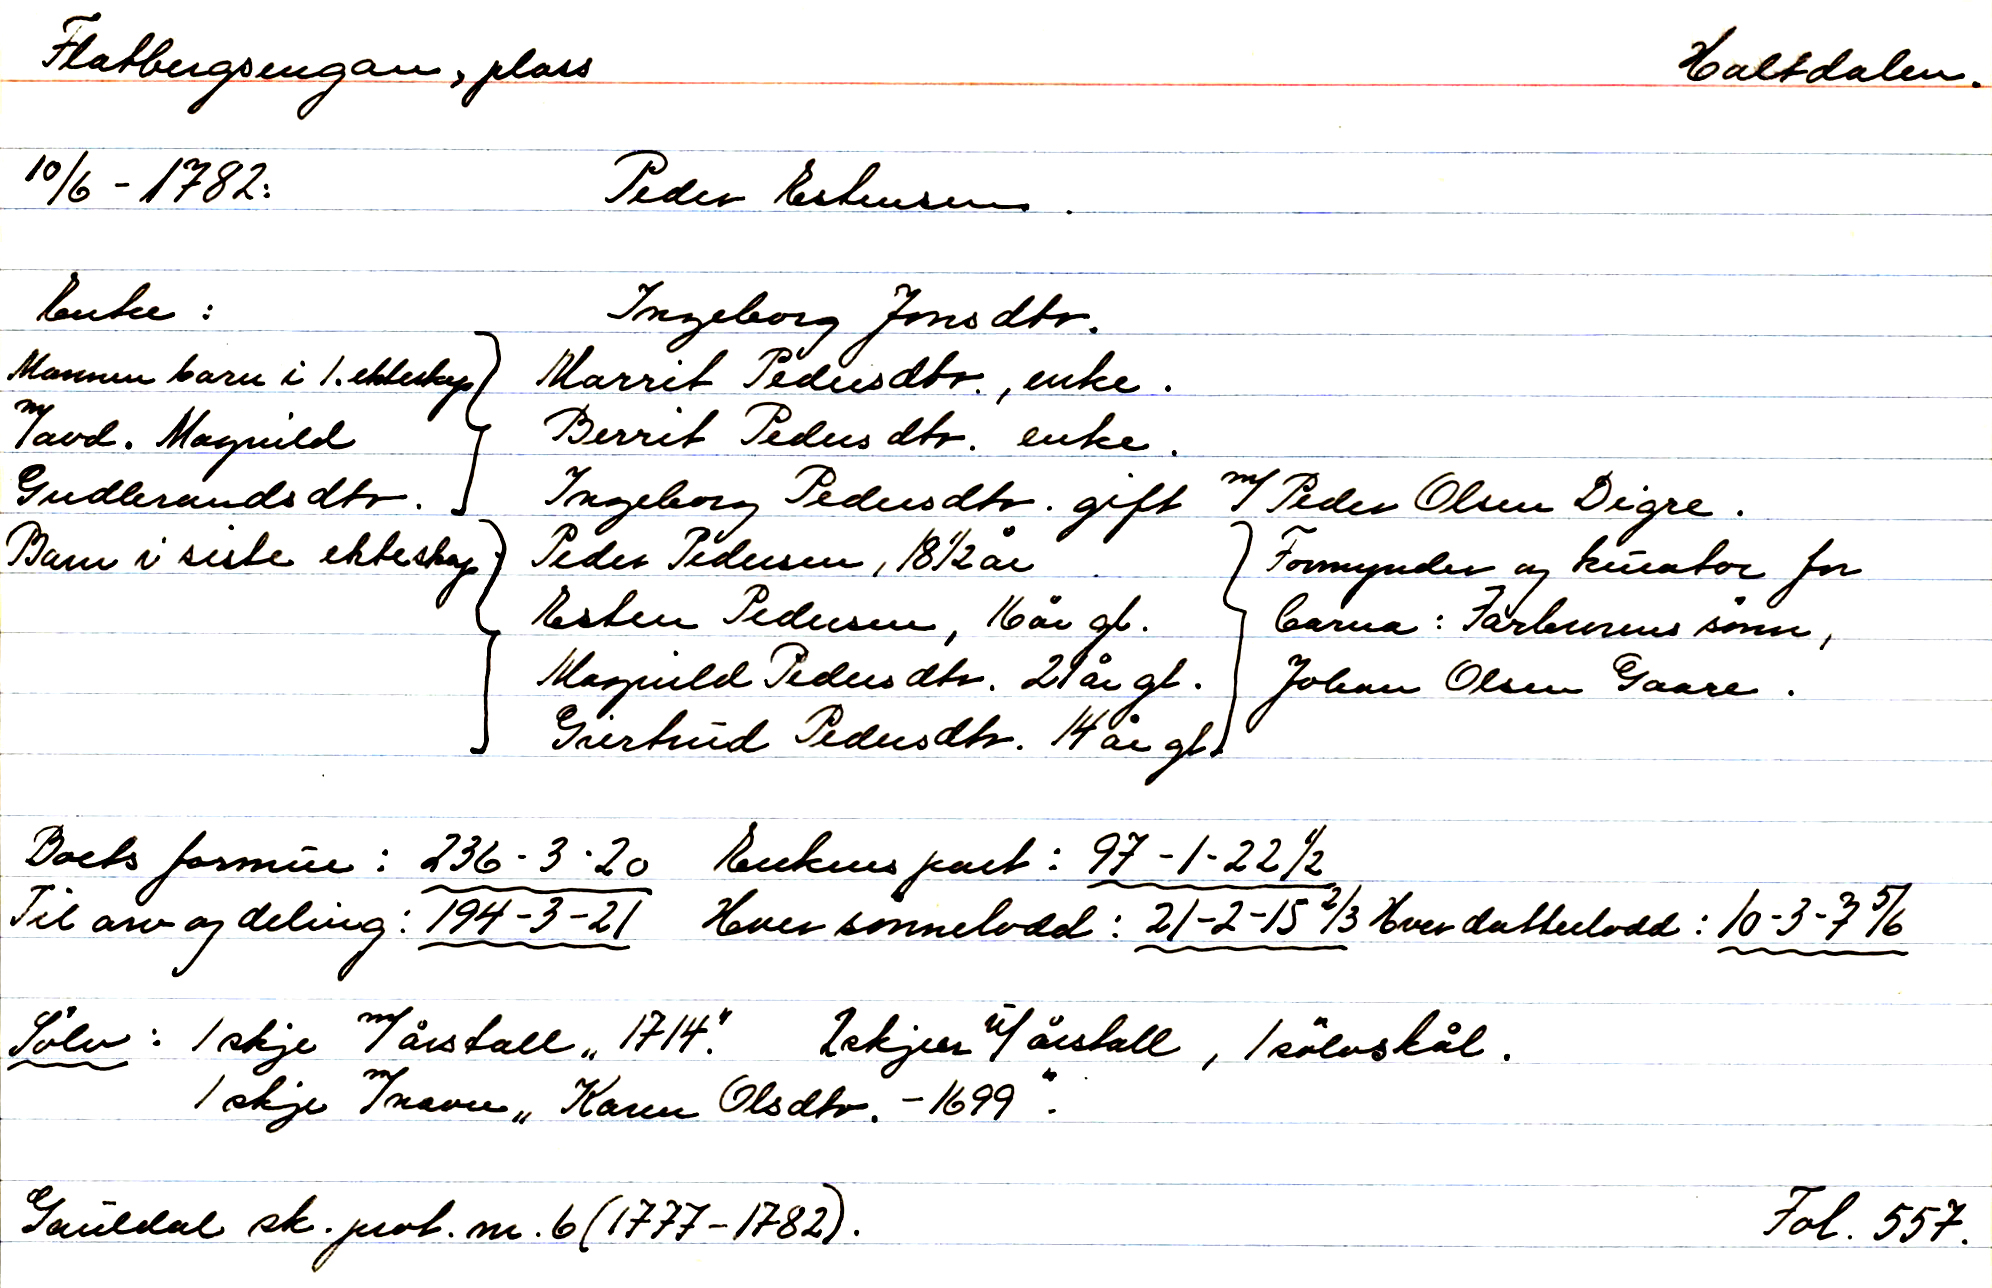 Flatbergsengan, plass Haltdalen.
10/6 - 1782: Peder Estensen.
Enke: Ingeborg Jonsdtr.
Mannen barn i 1. ekteskap Marrit Pedersdtr., enke.
m/avd. Magnild Berrit Pedersdtr. enke.
Gudbrandsdtr. Ingeborg Pedersdtr. gift m/ Peder Olsen Digre.
Barn i siste ekteskap Peder Pedersen, 18 1/2 år Formynder og kurator for
Esten Pedersen, 16 år gl. barna: Farbrorens sønn,
Magnild Pedersdtr. 21 år gl. Johan Olsen Gaare.
Giertrud Pedersdtr. 14 år gl.
Boets formue: 236-3-20 Enkens part: 97-1-22 1/2
Til arv og deling: 194-3-21 Hver sønnelodd: 21-2-15 2/3 Hver datterlodd: 10-3-7 5/6
Sølv: 1 skje m/årstall „1714". 2 skjeer u/årstall, 1 sølvskål.
1 skje m/navn „Karen Olsdtr. - 1699".
Gauldal sk. prot. nr. 6 (1777-1782). Fol. 557.